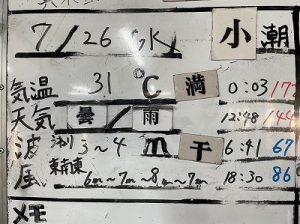 7/26 5K 小潮
気温 31 ℃ 満 0:03 172
天気 曇/雨 12:48 144
波 3~4 m 干 6:41 67
風 東南東 6m~7m~8m~7m 18:30 86
メモ